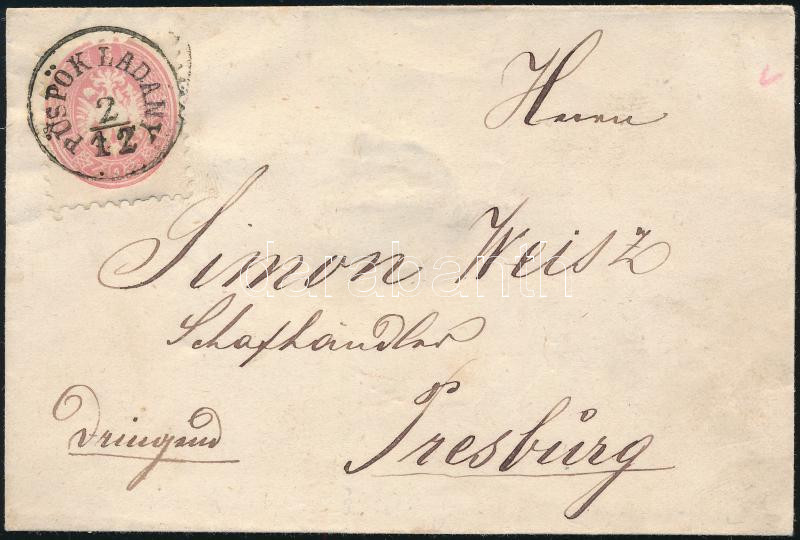 PÜSPÖK LADÁNY
2/12
Herrn
Simon Weisz
Schafhändler
Dringend
Presbŭrg
darabanth